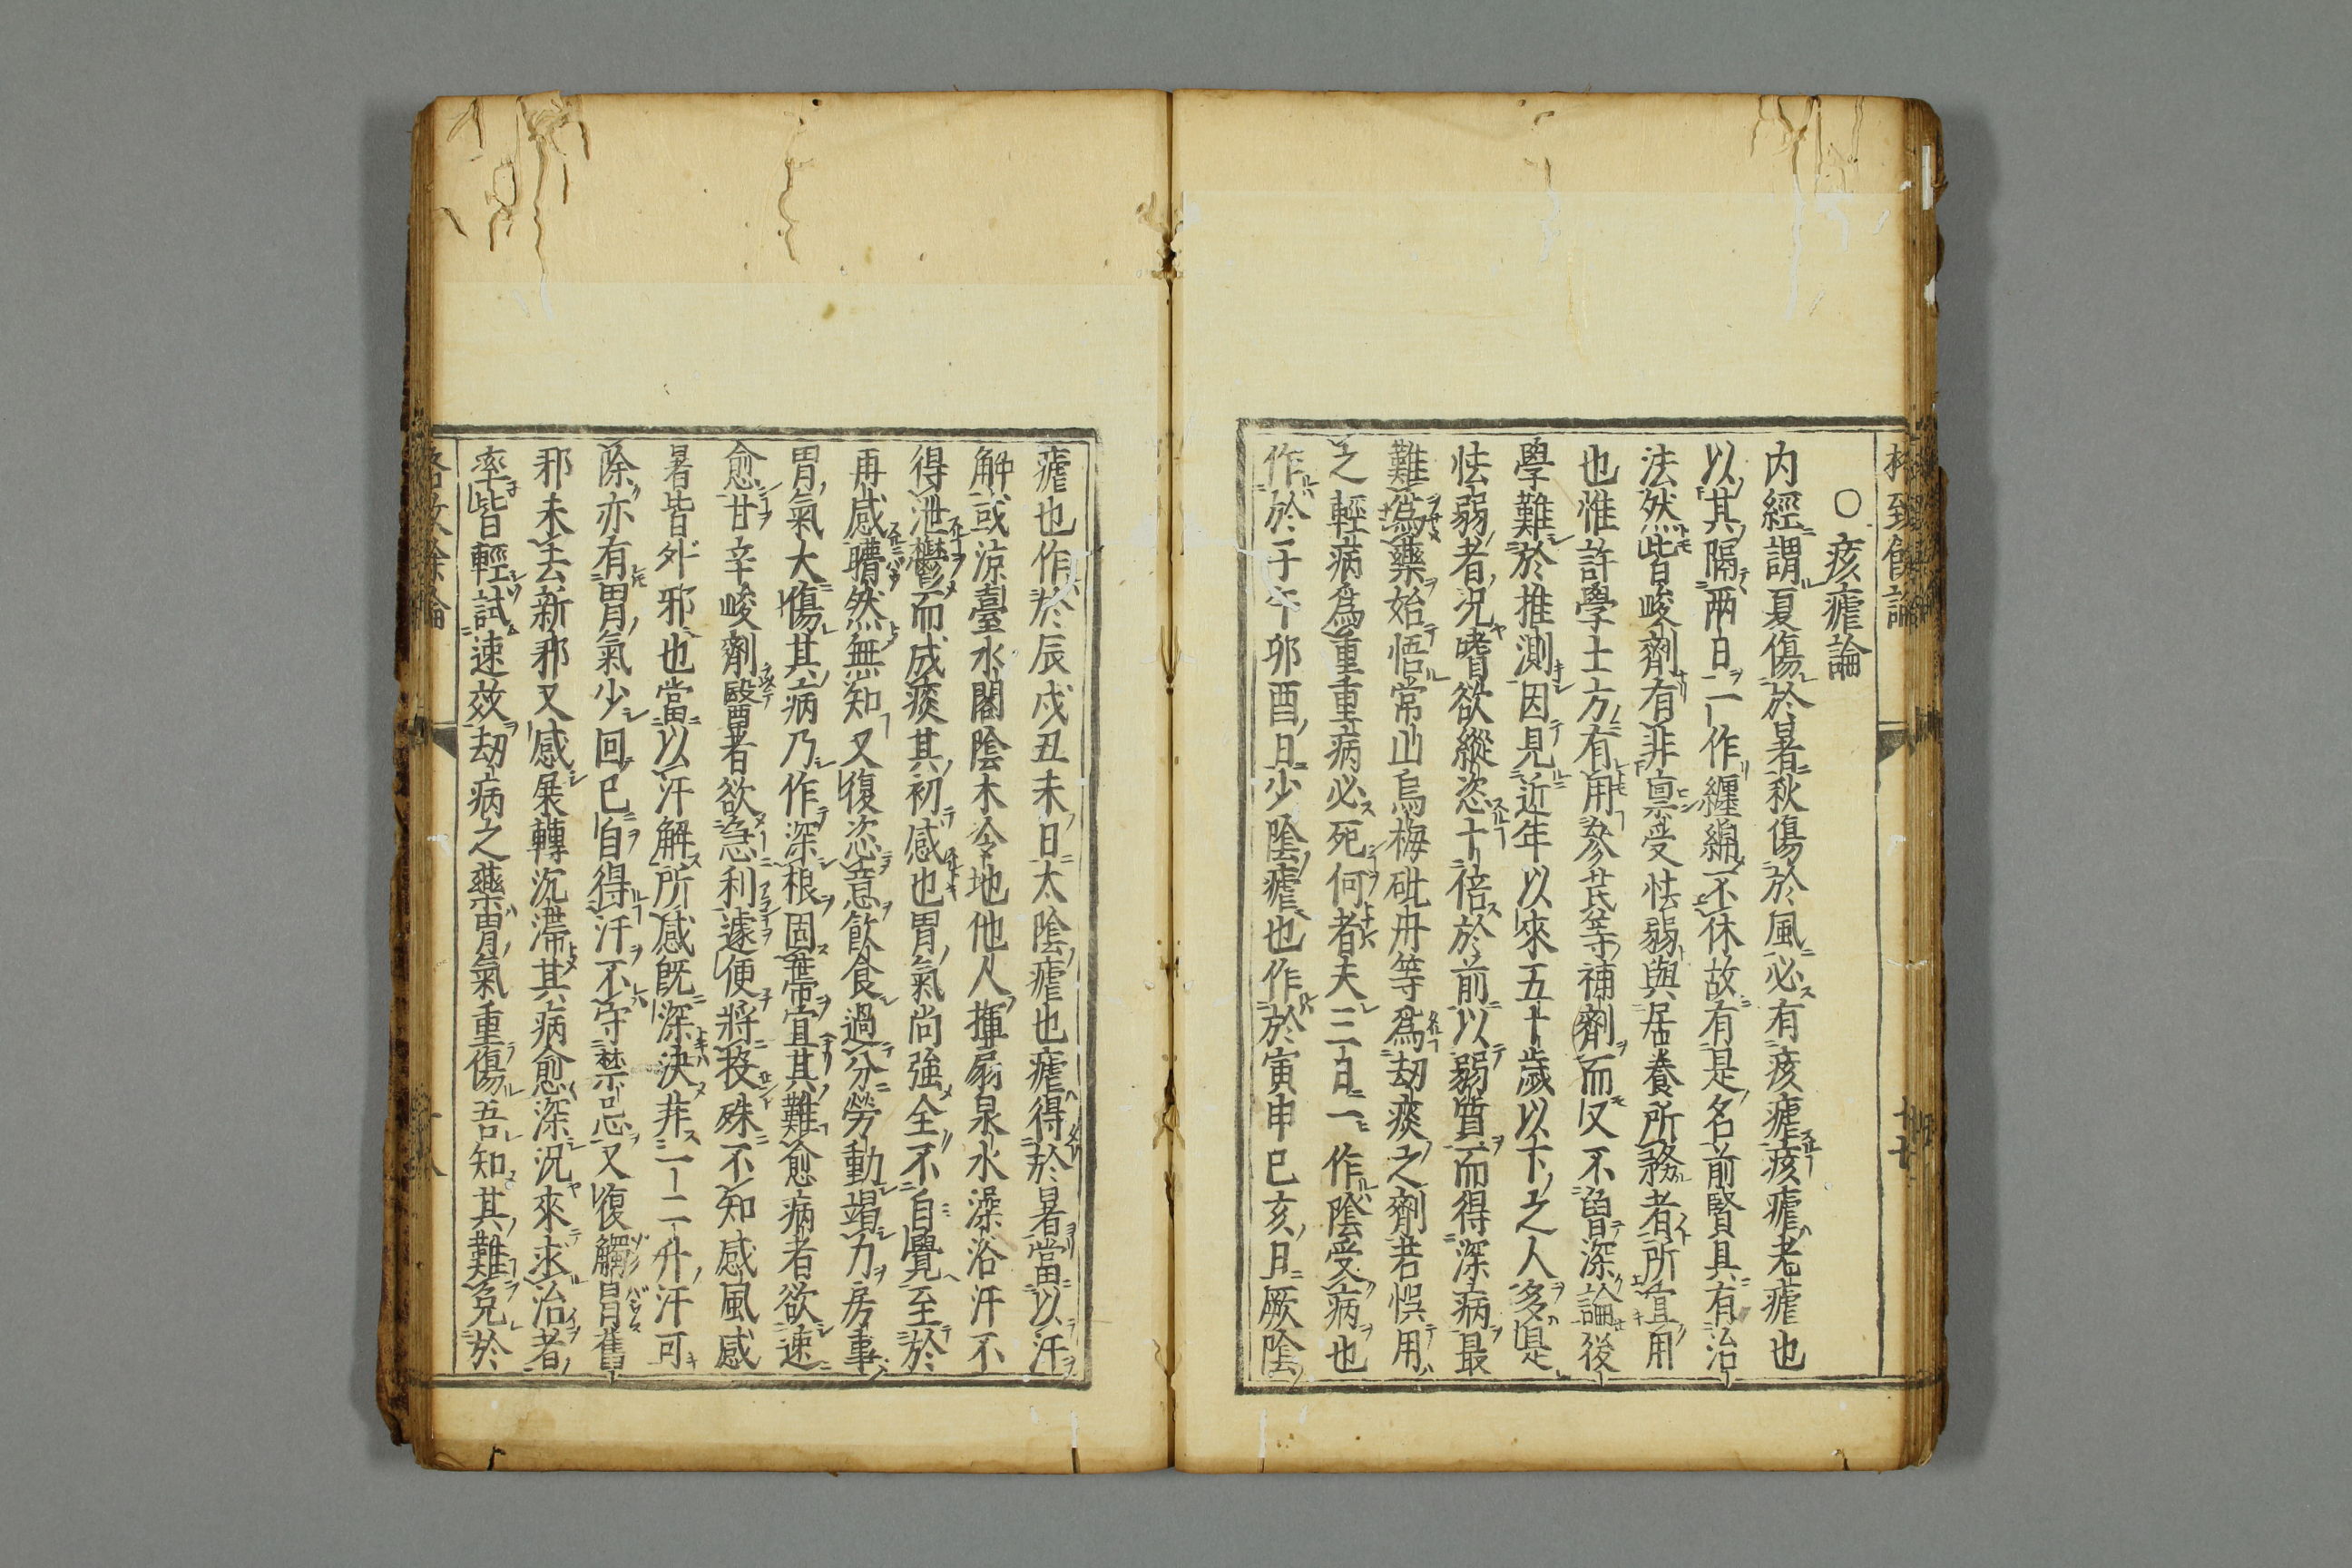 格致餘論
○痎瘧論
内經謂夏傷於暑秋傷於風必有痎瘧痎瘧老瘧也
以其隔兩日一作纏綿不休故有是名前賢具有治
法然皆峻劑有非稟受怯弱與居養所務者所宜用
也惟許學士方有用參芪等補劑而又不曽深論後
學難於推測因見近年以來五十歳以下之人多是
怯弱者況嗜欲縱恣十倍於前以弱質而得深病最
難為藥始悟常山烏梅砒丹等爲劫痰之劑若悞用
之輕病爲重重病必死何者夫三日一作陰受病也
作於子午卯酉日少陰瘧也作於寅申巳亥日厥陰
瘧也作於辰戌丑未日太陰瘧也瘧得於暑當以汗
解或涼臺水閣陰木冷地他人揮扇泉水澡浴汗不
得泄鬱而成痰其初感也胃氣尚強全不自覺至於
再感懵然無知又復恣意飲食過分勞動竭力房事
胃氣大傷其病乃作深根固蔕宜其難愈病者欲速
愈甘辛峻劑醫者欲急利遽便將投殊不知感風感
暑皆外邪也當以汗解所感既深決非一二升汗可
除亦有胃氣少回已自得汗不守禁忌又復觸冒舊
邪未去新邪又感展轉沉滯其病愈深況來求治者
率皆輕試速效劫病之藥胃氣重傷吾知其難免於
格致餘論